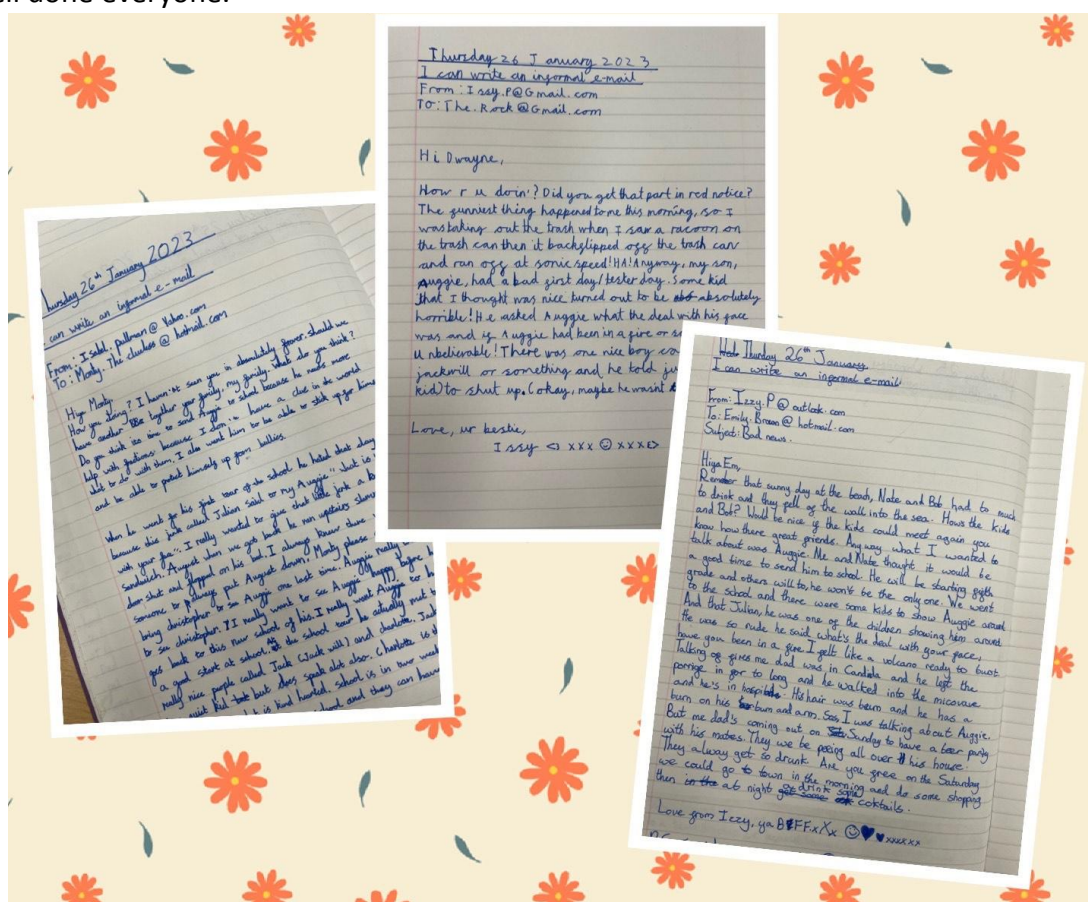 done everyone.
Thursday 26 January 2023
I can write an informal e-mail
From: Issy.P@Gmail.com
To: The.Rock@Gmail.com
Hi Dwayne,
How r u doin'? Did you get that part in red notice?
The funniest thing happened to me this morning, so I
was taking out the trash when I saw a racoon on
the trash can then it backflipped off the trash can
and ran off at sonic speed! HA! Anyway, my son,
Auggie, had a bad first day/tester day. Some kid
that I thought was nice turned out to be absolutely
horrible! He asked Auggie what the deal with his face
was and if Auggie had been in a fire or
unbelievable! There was one nice boy
jackmill or something and he told
kid) to shut up. (okay, maybe he wasn't
Love, ur bestie,
Issy <3 xxx ☺ xxx
26th January 2023
can write an informal e-mail
From: Isabel.pullman@Yahoo.com
To: Monty.The clueless@hotmail.com
Hiya Monty,
How you doing? I haven't seen you in absolutely forever, should we
have another together your family, my family. What do you think?
Do you think its time to send Auggie to school because he needs more
help with fractions because I don't have a clue in the world
what to do with them. I also want him to be able to stick up for him
and be able to protect himself up from bullies.
When he went for his first tour of the school he hated that day
because this jerk called Julian said to my Auggie "what is
with your face". I really wanted to give that little jerk a
sandwich. August when we got back he ran upstairs
door shut and flopped on his bed. I always knew there
someone to always put August down. Monty please
bring christopher to see Auggie one last time. Auggie really
to see christopher. I really want to see Auggie happy before he
goes back to this new school of his. I really want Auggie to
a good start at school. At the school tour he actually met
really nice people called Jack (Jack will) and charlotte,
quiet kid but does speak alot also. Charlotte is
is kind hearted. School is in two
and they can have
Thurday 26th January
I can write an informal e-mail
From: Izzy.P@outlook.com
To: Emily.Brown@hotmail.com
Subject: Bad news.
Hiya Em,
Remember that sunny day at the beach, Nate and Bob had to much
to drink and they fell of the wall into the sea. Hows the kids
and Bob? Would be nice if the kids could meet again you
know how there great friends. Anyway what I wanted to
talk about was Auggie. Me and Nate thought it would be
a good time to send him to school. He will be starting fifth
grade and others will to, he won't be the only one. We went
to the school and there were some kids to show Auggie around
And that Julian, he was one of the children showing him around
He was so rude he said, what's the deal with your face,
have you been in a fire I felt like a volcano ready to bust
Talking of fires me dad was in Candada and he left the
porrige in for to long and he walked into the micovave
and he's in hospital. His hair was burn and he has a
burn on his bum and arm. Sos, I was talking about Auggie.
But me dad's coming out on Sunday to have a beer party
with his mates. They we be peeing all over his house.
They alway get so drunk. Are you free on the Saturday
we could go to town in the morning and do some shopping
then at night drink some coktails.
Love from Izzy, ya BFF.xXx ☺♥♥xxxxxx